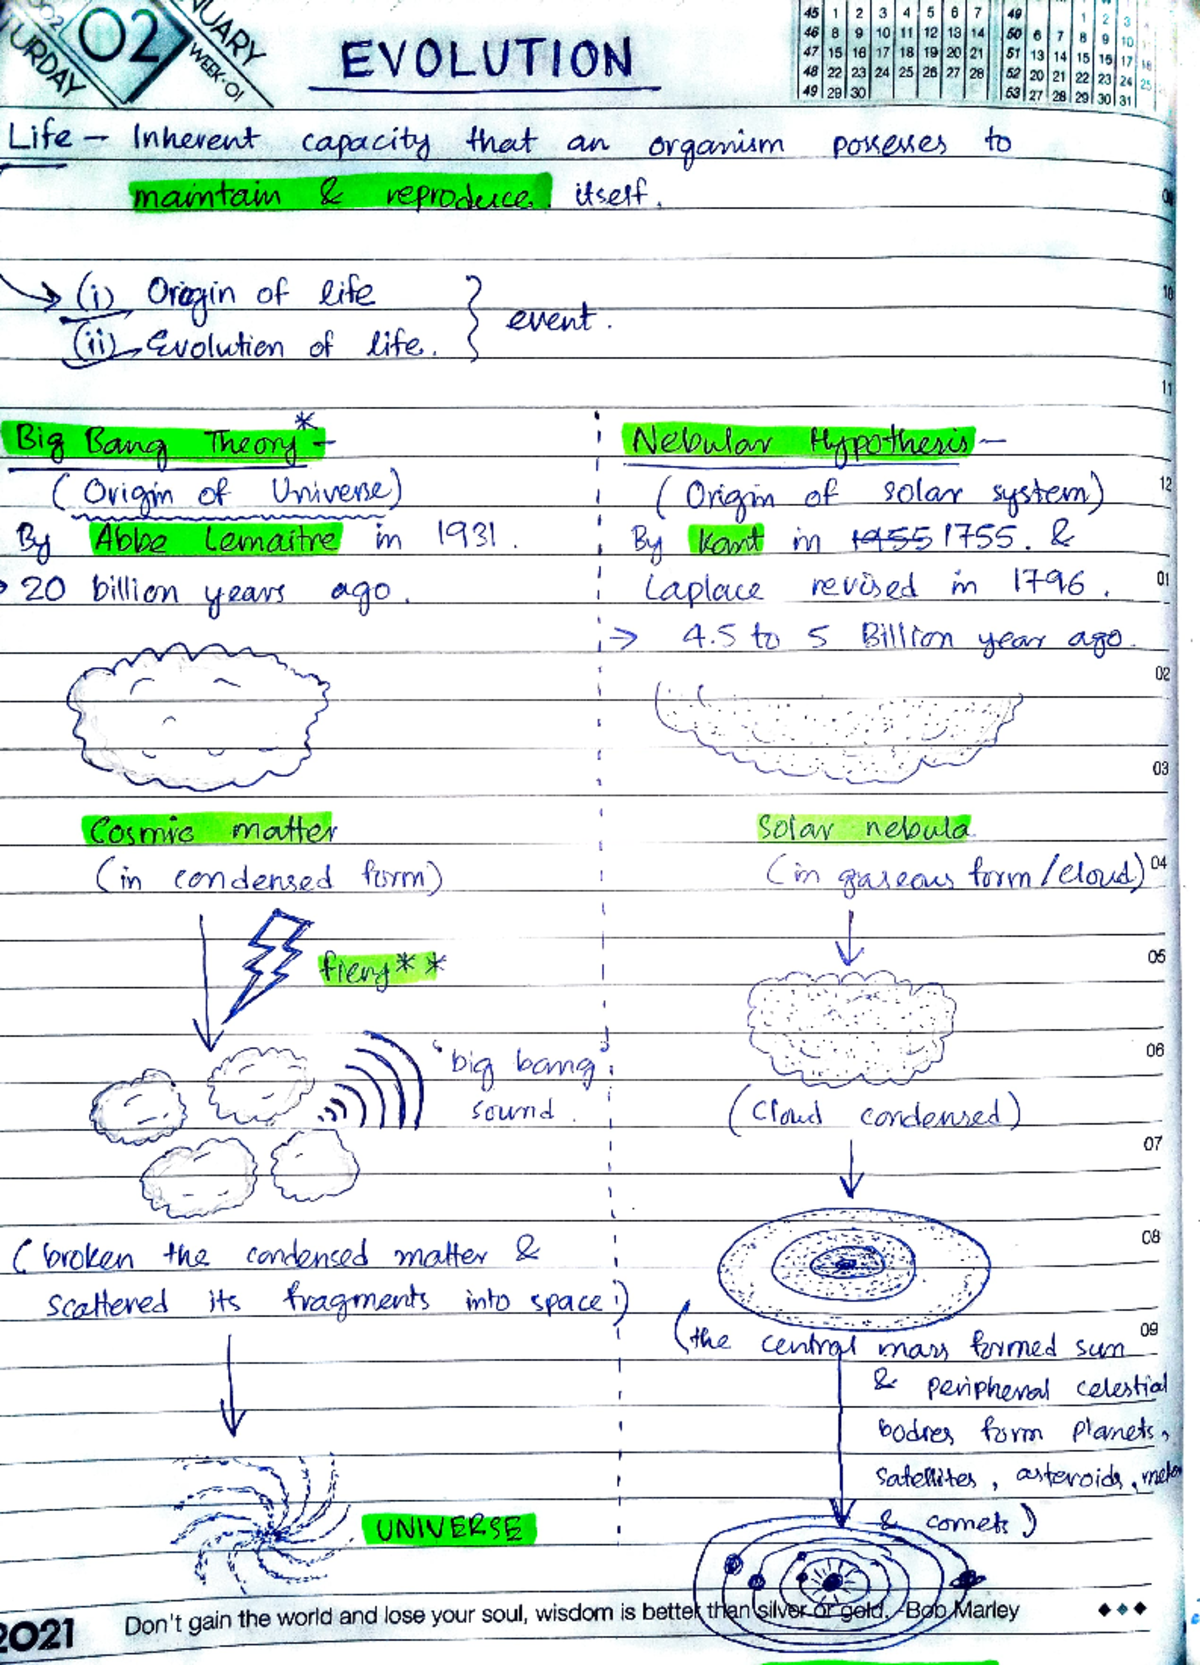 02
NUARY
WEEK-01
URDAY
EVOLUTION
45 1 2 3 4 5 6 7
46 8 9 10 11 12 13 14
47 15 16 17 18 19 20 21
48 22 23 24 25 26 27 28
49 29 30
49 1 2 3
50 6 7 8 9 10
51 13 14 15 16 17 18
52 20 21 22 23 24 25
53 27 28 29 30 31
Life - Inherent capacity that an organism possesses to
maintain & reproduce itself.
(i) Origin of life
(ii) Evolution of life.
} event.
Big Bang Theory* -
(Origin of Universe)
By Abbe Lemaitre in 1931.
20 billion years ago.
Cosmic matter
(in condensed form)
fiery**
'big bang'
sound.
(broken the condensed matter &
scattered its fragments into space)
UNIVERSE
Nebular Hypothesis -
(Origin of solar system)
By Kant in 1955 1755. &
Laplace revised in 1796.
→ 4.5 to 5 Billion year ago.
Solar nebula
(in gaseous form/cloud)
(cloud condensed)
(the central mass formed sun
& peripheral celestial
bodies form planets,
satellites, asteroids,
& comets)
10
11
12
01
02
03
04
05
06
07
08
09
2021
Don't gain the world and lose your soul, wisdom is better than silver or gold. -Bob Marley